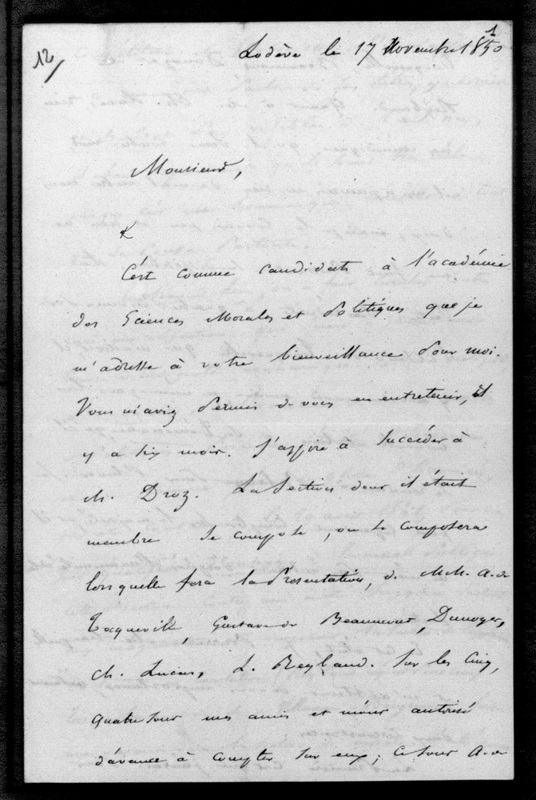 12/
Lodève le 17 Novembre 1850
1
Monsieur,
C'est comme candidat à l'académie
des Sciences Morales et Politiques que je
m'adresse à votre bienveillance pour moi.
Vous m'aviez permis de vous en entretenir, il
y a six mois. J'aspire à succéder à
M. Droz. La Section dont il était
membre se compose, ou se composera
lorsqu'elle fera la présentation, de MM. A. de
Tocqueville, Gustave de Beaumont, Dunoyer,
Ch. Lucas, L. Reybaud. Sur les cinq,
quatre sont mes amis et m'ont autorisé
d'avance à compter sur eux; ce sont A. de